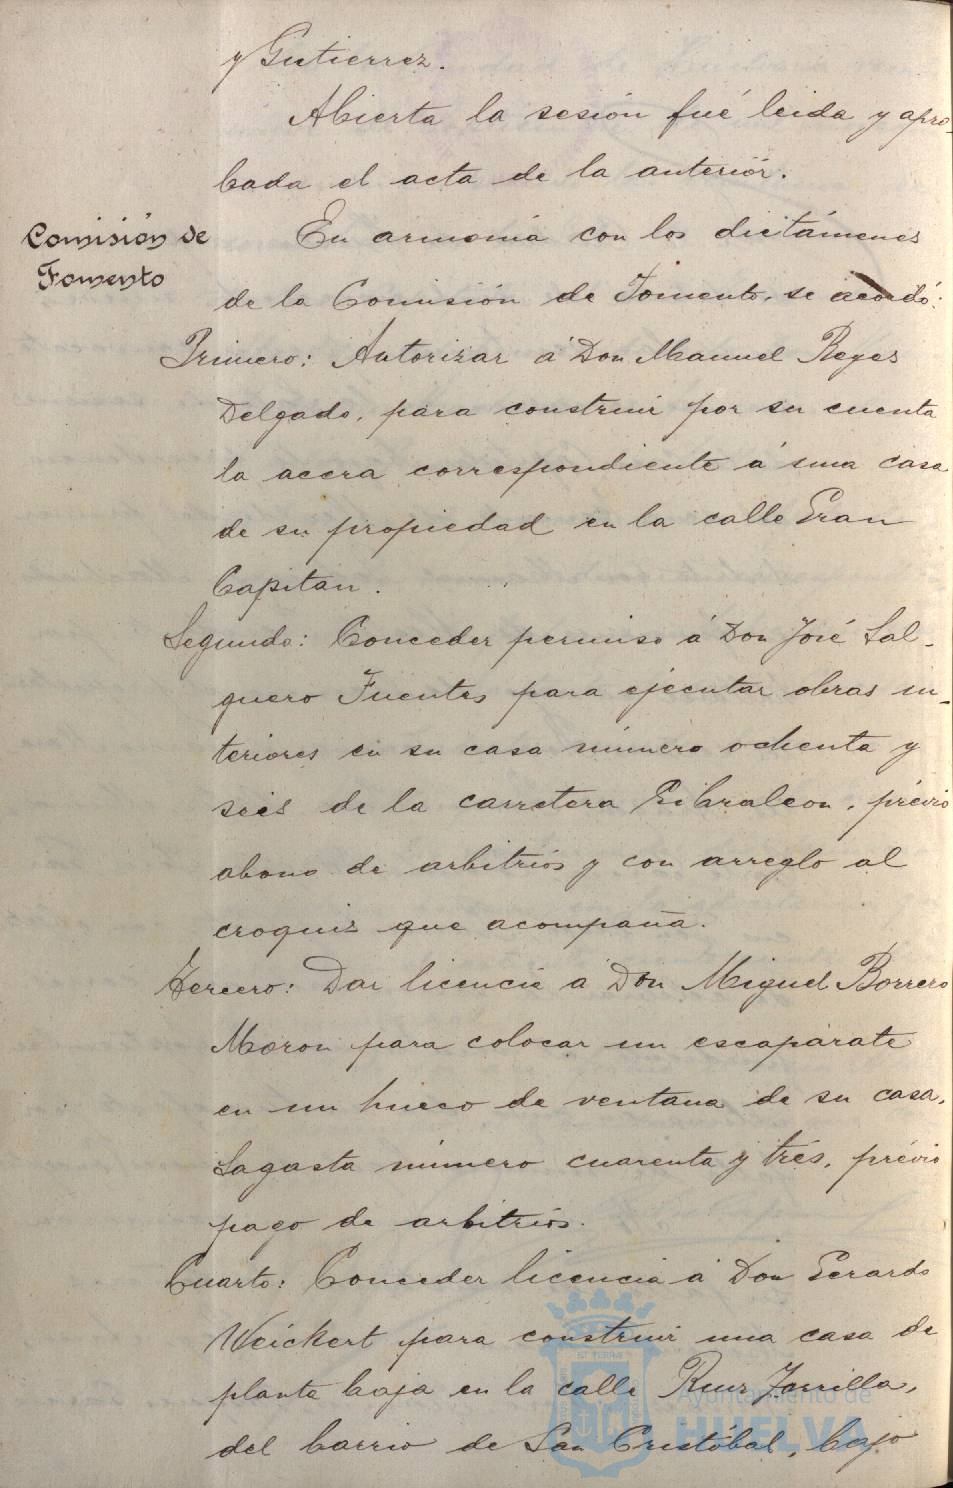 y Gutierrez.
Abierta la sesión fué leida y apro-
bada el acta de la anterior.
Comisión de
Fomento
En armonía con los dictámenes
de la Comisión de Fomento, se acordó:
Primero: Autorizar á Don Manuel Reyes
Delgado, para construir por su cuenta
la acera correspondiente á una casa
de su propiedad en la calle Gran
Capitan.
Segundo: Conceder permiso á Don José Sal-
guero Fuentes para ejecutar obras in-
teriores en su casa número ochenta y
seis de la carretera Gibraleon, prévio
abono de arbitrios y con arreglo al
croquis que acompaña.
Tercero: Dar licencia á Don Miguel Borrero
Moron para colocar un escaparate
en un hueco de ventana de su casa,
Sagasta número cuarenta y trés, prévio
pago de arbitrios.
Cuarto: Conceder licencia á Don Gerardo
Weickert para construir una casa de
planta baja en la calle Ruiz Zorrilla,
del barrio de San Cristóbal, bajo
Ayuntamiento de
HUELVA